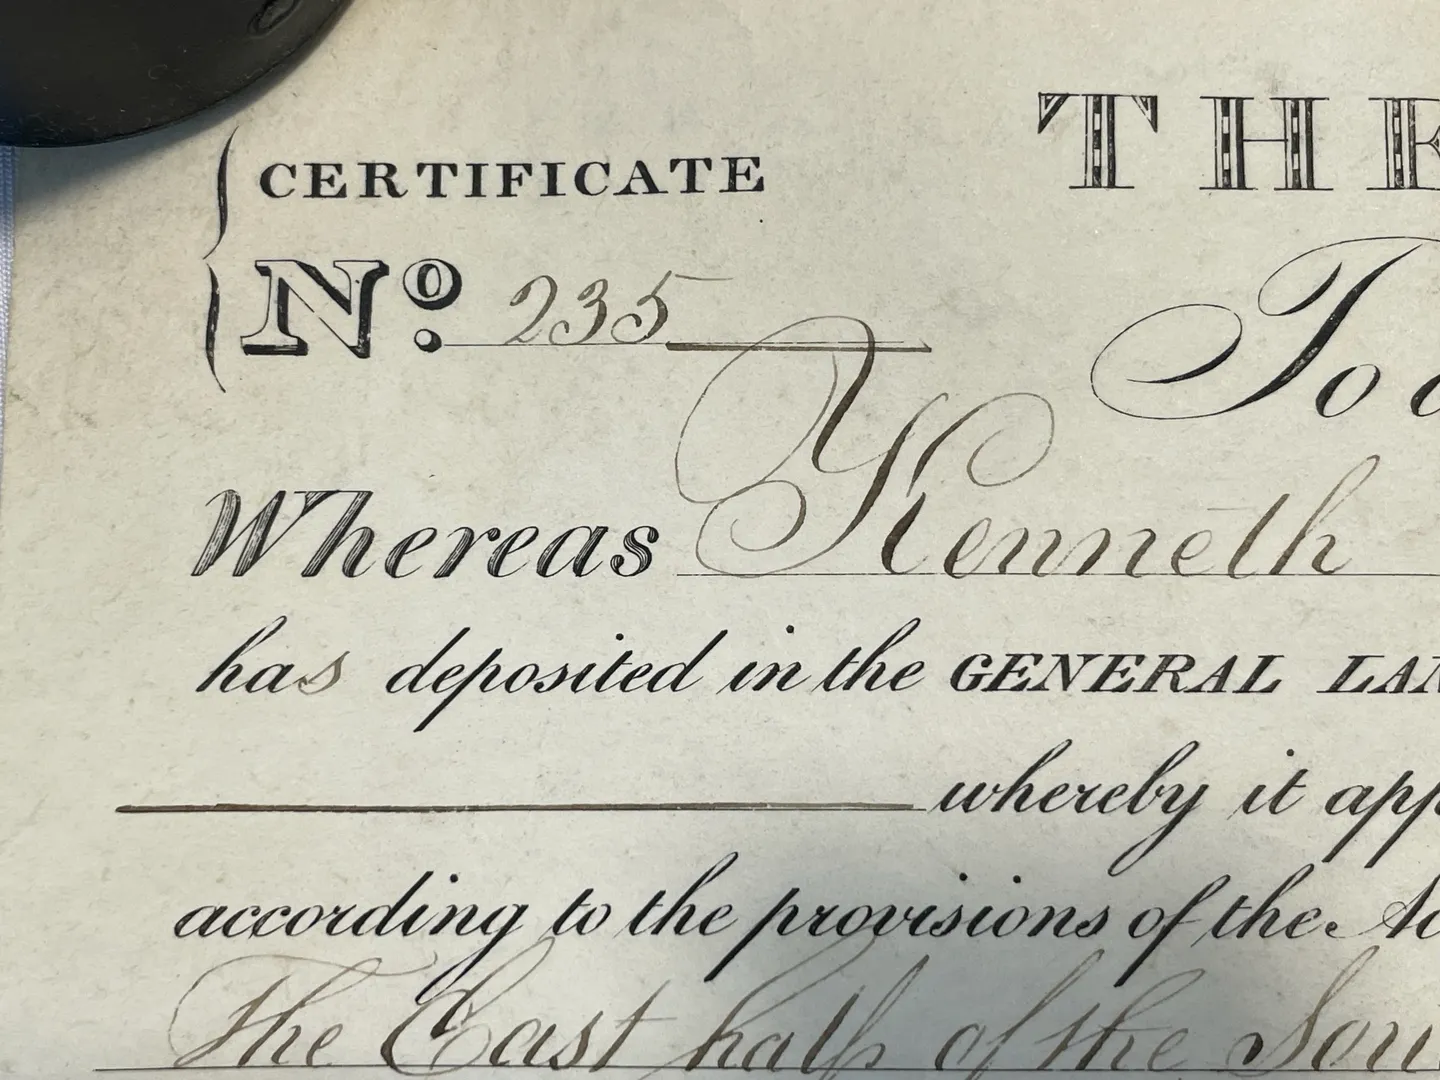 CERTIFICATE
THE
No. 235
To
Whereas Kenneth
has deposited in the GENERAL LAN
whereby it app
according to the provisions of the Ac
The East half of the Sou